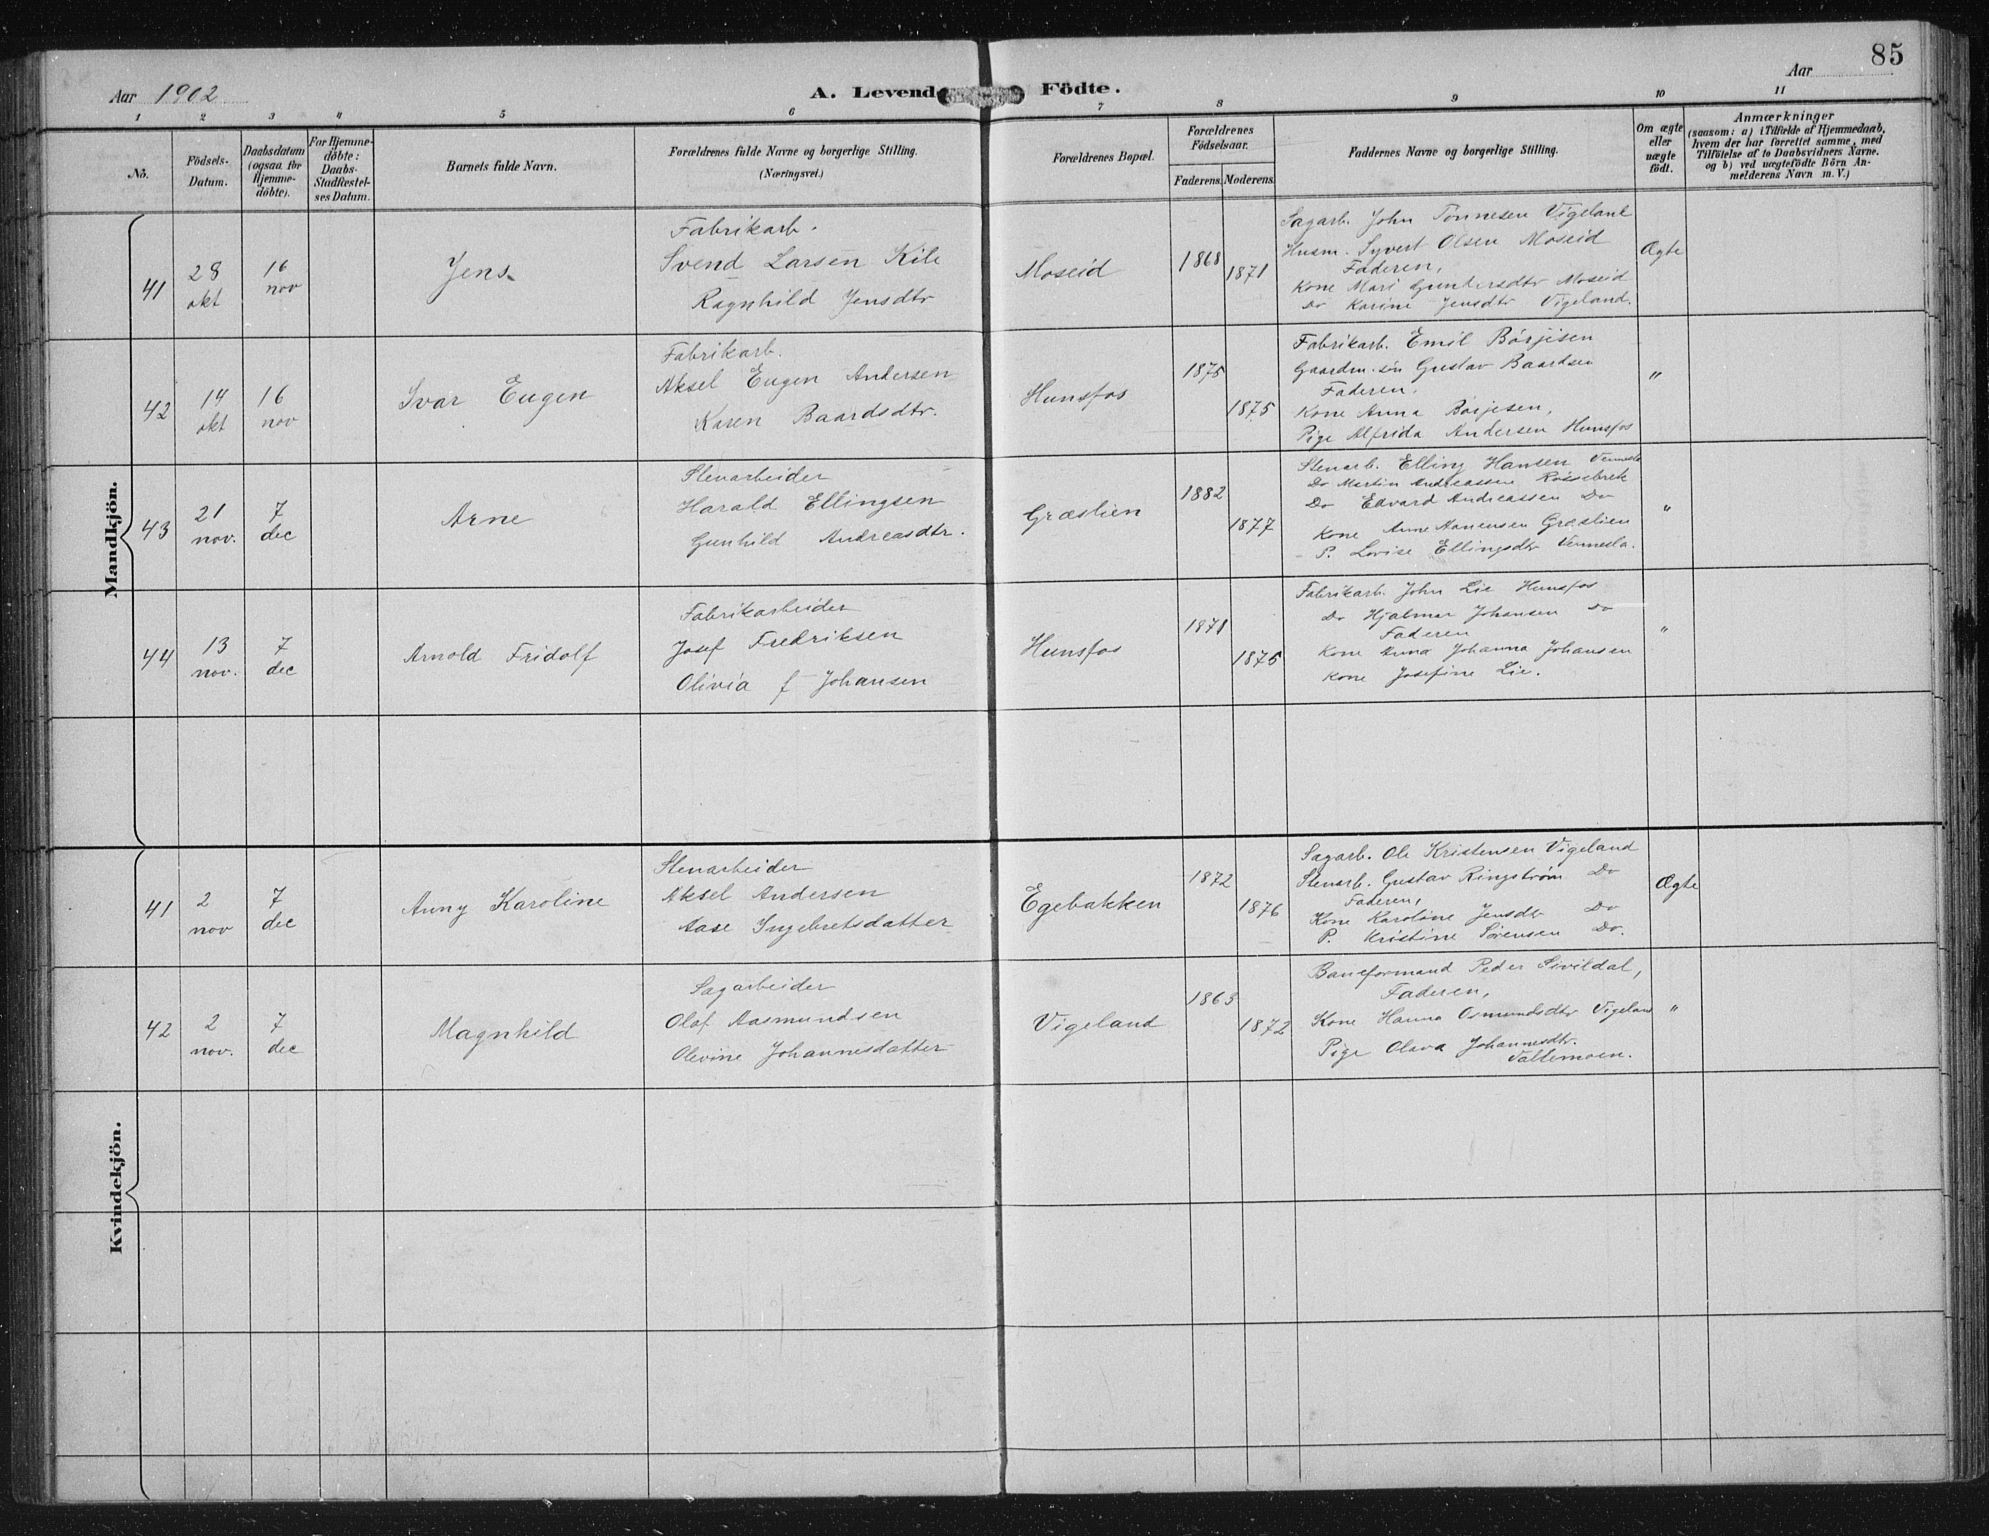 85
Aar 1902
A. Levende Födte.
Aar
1 2 3 4 5 6 7 8 9 10 11
No.
Födsels-Datum.
Daabsdatum (ogsaa for Hjemme-döbte).
For Hjemme-döbte: Daabs-Stadfæstel-ses Datum.
Barnets fulde Navn.
Forældrenes fulde Navne og borgerlige Stilling.
(Næringsvei.)
Forældrenes Bopæl.
Forældrenes Födselsaar.
Faderens. Moderens.
Faddernes Navne og borgerlige Stilling.
Om ægte eller uægte födt.
Anmærkninger
(saasom: a) i Tilfælde af Hjemmedaab,
hvem der har forrettet samme, med
Tilföielse af to Daabsvidners Navne.
og b) ved uægtefödte Börn An-
melderens Navn m. V.)
Mandkjön.
41
28 okt
16 nov
Jens
Fabrikarb.
Svend Larsen Kile
Ragnhild Jensdtr
Moseid
1868
1871
Sagarb. John Tönnesen Vigeland
Husm. Syvert Olsen Moseid
Faderen,
Kone Mari Gundersdtr Moseid
Do Karine Jensdtr Vigeland.
Ægte
42
14 okt
16 nov
Ivar Eugen
Fabrikarb.
Aksel Eugen Andersen
Karen Baardsdtr.
Hunsfos
1875
1875
Fabrikarb. Emil Börjesen
Gaardm. sön Gustav Baardsen
Faderen.
Kone Anna Börjesen,
Pige Alfrida Andersen Hunsfos
"
43
21 nov.
7 dec
Arne
Stenarbeider
Harald Ellingsen
Gunhild Andreasdtr.
Græslien
1882
1877
Stenarb. Elling Hansen Vennesla
Do Martin Andreassen
Do Edvard Andreassen Do
Kone Anne Græslien
P. Lovise Ellingsdtr Vennesla.
"
44
13 nov.
7 dec
Arnold Fridolf
Fabrikarbeider
Josef Fredriksen
Olivia f Johansen
Hunsfos
1871
1875
Fabrikarb. John Lie Hunsfos
Do Hjalmar Johansen Do
Faderen
Kone Anna Johanna Johansen
Kone Josefine Lie.
"
Kvindekjön.
41
2 nov
7 dec
Anny Karoline
Stenarbeider
Aksel Andersen
Aase Ingebretsdatter
Egebakken
1872
1876
Sagarb. Ole Kristensen Vigeland
Stenarb. Gustav Ringström Do
Faderen,
Kone Karoline Jensdtr Do
P. Kristine Sörensen Do.
Ægte
42
2 nov.
7 dec
Magnhild
Sagarbeider
Olaf Aasmundsen
Olevine Johannesdatter
Vigeland
1863
1872
Baneformand Peder Sivildal,
Faderen,
Kone Hanna Osmundsdtr Vigeland
Pige Olava Johannesdtr.
"